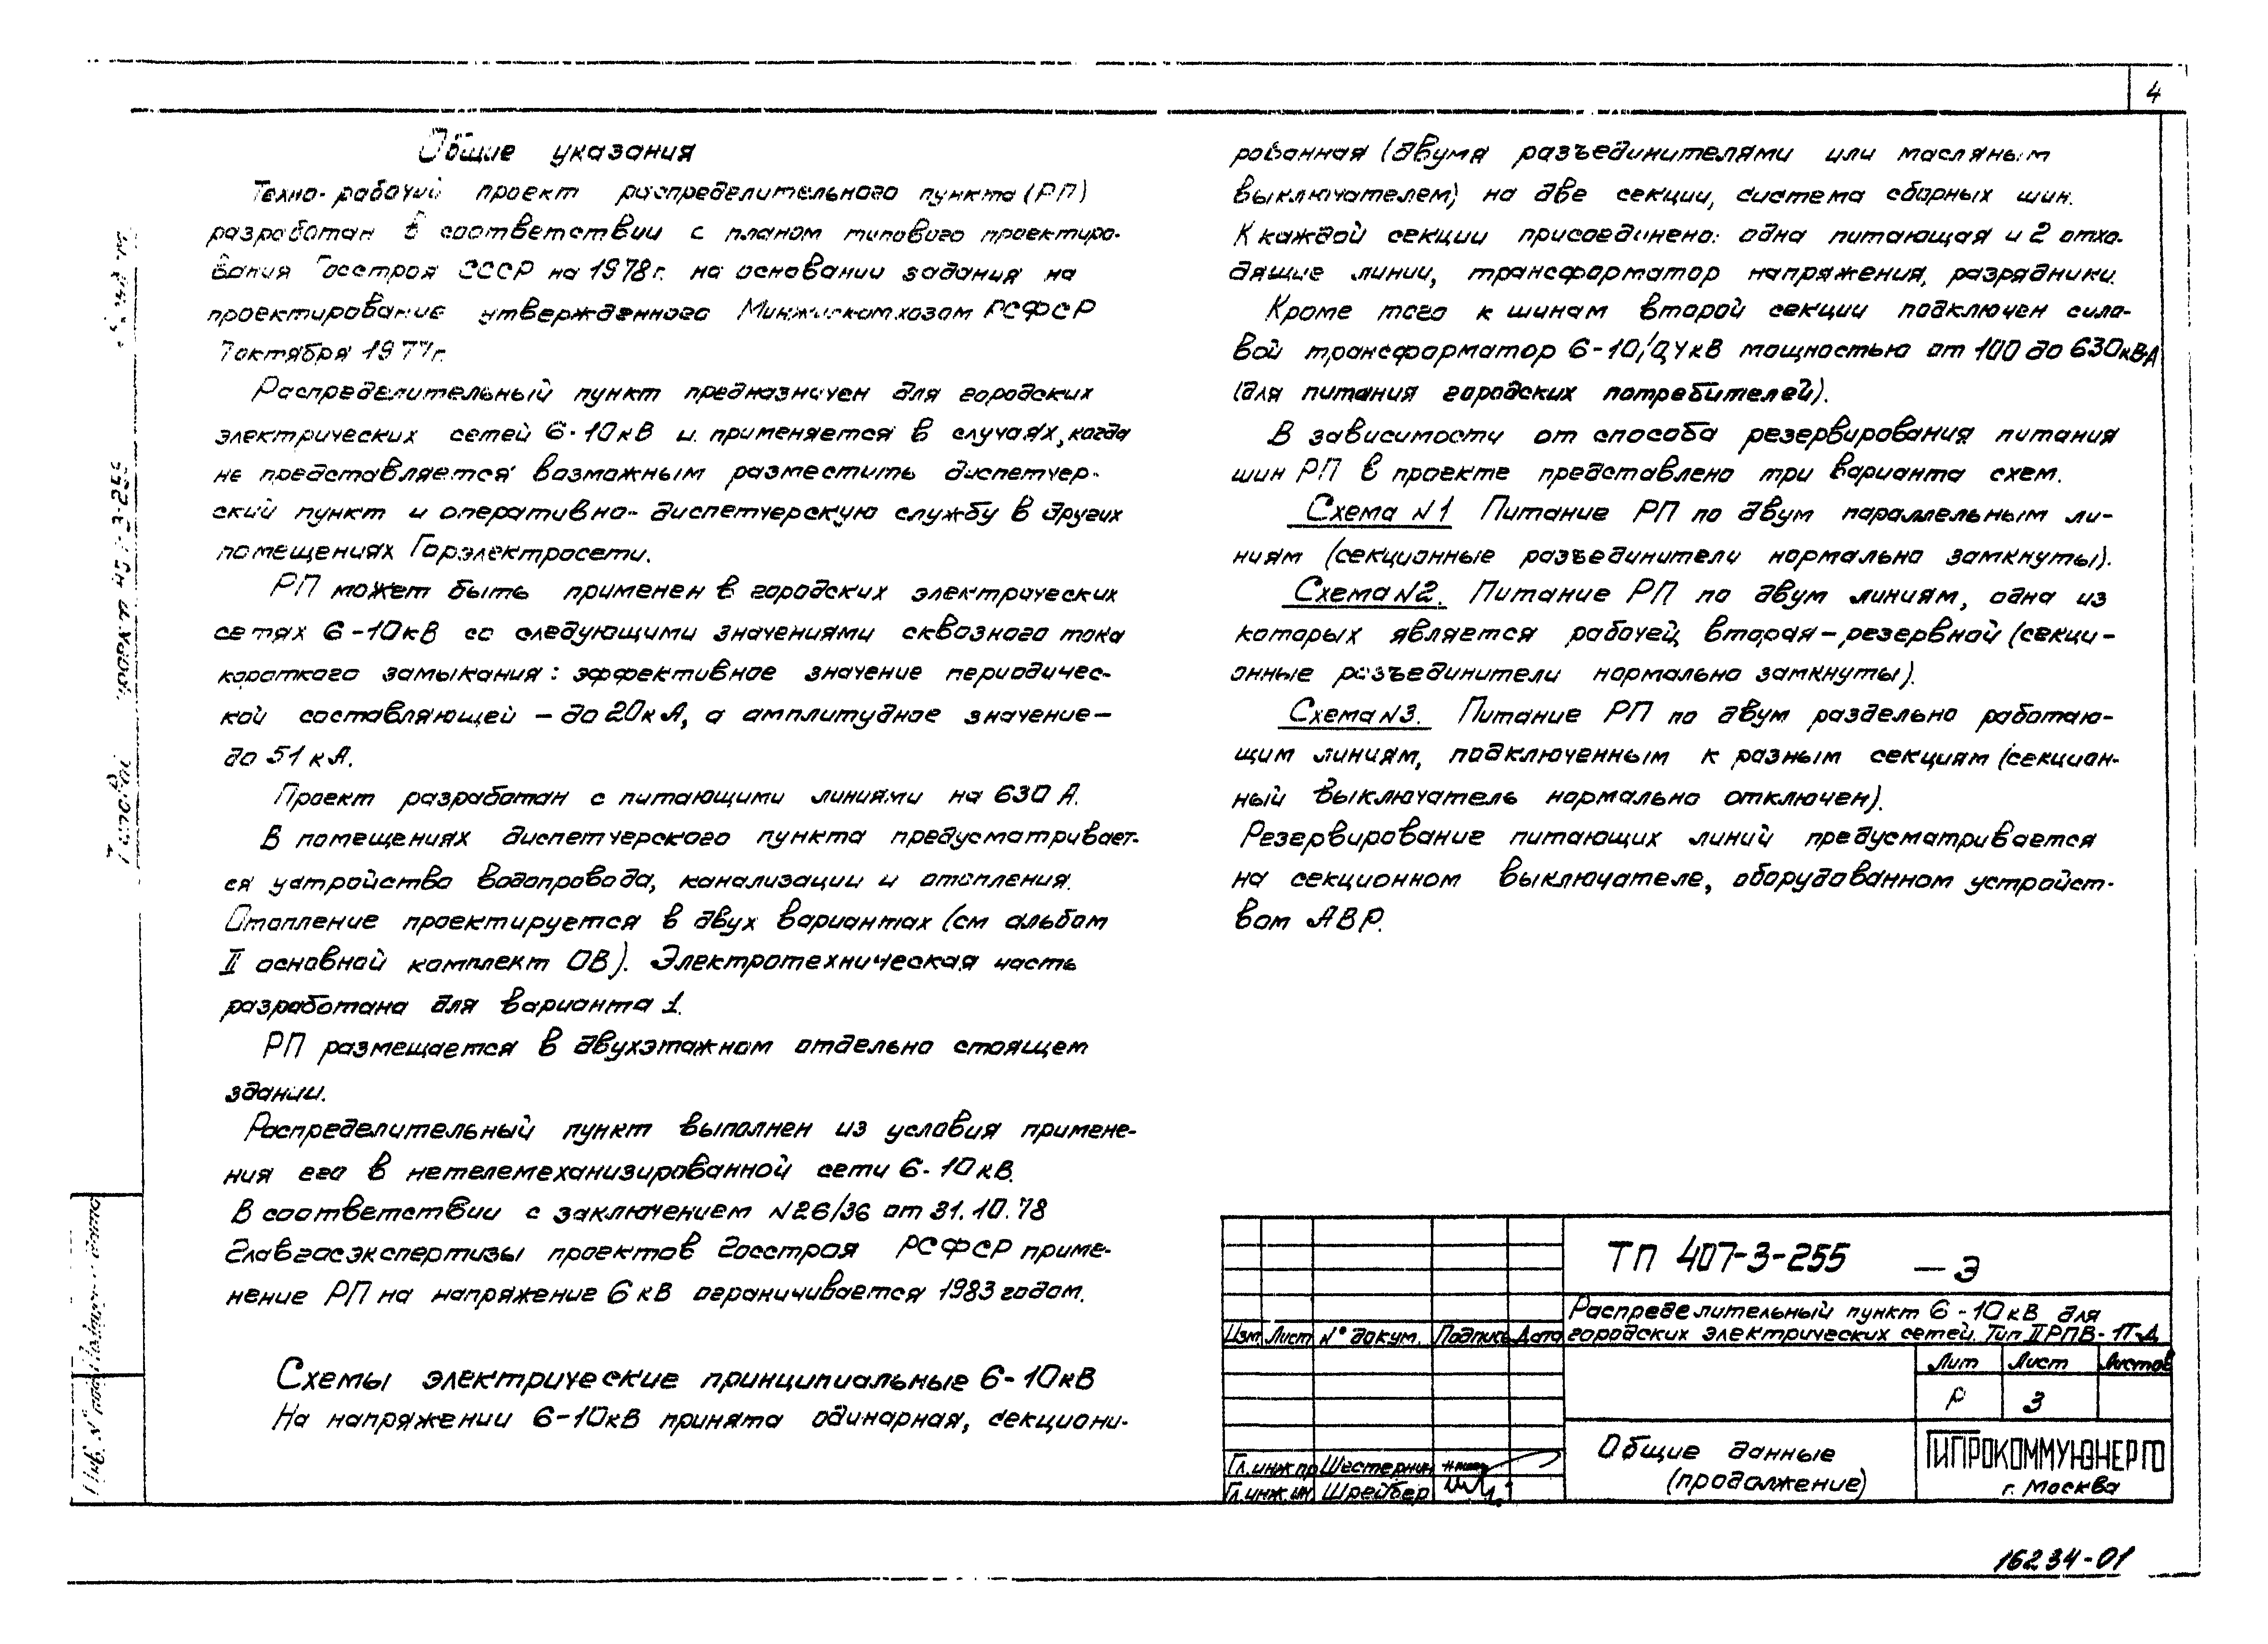 4
Общие указания
Техно-рабочий проект распределительного пункта (РП)
разработан в соответствии с планом типового проектиро-
вания Госстроя СССР на 1978г. на основании задания на
проектирование утвержденного Минжилкомхозом РСФСР
7 октября 1977г.
Распределительный пункт предназначен для городских
электрических сетей 6-10кВ и применяется в случаях, когда
не представляется возможным разместить диспетчер-
ский пункт и оперативно-диспетчерскую службу в других
помещениях Горэлектросети.
РП может быть применен в городских электрических
сетях 6-10кВ со следующими значениями сквозного тока
короткого замыкания: эффективное значение периодичес-
кой составляющей – до 20кА, а амплитудное значение –
до 51 кА.
Проект разработан с питающими линиями на 630 А.
В помещениях диспетчерского пункта предусматривает-
ся устройство водопровода, канализации и отопления.
Отопление проектируется в двух вариантах (см альбом
II основной комплект ОВ). Электротехническая часть
разработана для варианта 1.
РП размещается в двухэтажном отдельно стоящем
здании.
Распределительный пункт выполнен из условия примене-
ния его в нетелемеханизированной сети 6-10кВ.
В соответствии с заключением N26/36 от 31.10.78
Главгосэкспертизы проектов Госстроя РСФСР приме-
нение РП на напряжение 6 кВ ограничивается 1983 годом.
Схемы электрические принципиальные 6-10кВ
На напряжении 6-10кВ принята одинарная, секциони-
рованная (двумя разъединителями или масляным
выключателем) на две секции, система сборных шин.
К каждой секции присоединено: одна питающая и 2 отхо-
дящие линии, трансформатор напряжения, разрядники.
Кроме того к шинам второй секции подключен сило-
вой трансформатор 6-10/0,4кВ мощностью от 100 до 630кВА
(для питания городских потребителей).
В зависимости от способа резервирования питания
шин РП в проекте представлено три варианта схем.
Схема N1 Питание РП по двум параллельным ли-
ниям (секционные разъединители нормально замкнуты).
Схема N2. Питание РП по двум линиям, одна из
которых является рабочей, вторая – резервной (секци-
онные разъединители нормально замкнуты).
Схема N3. Питание РП по двум раздельно работаю-
щим линиям, подключенным к разным секциям (секцион-
ный выключатель нормально отключен).
Резервирование питающих линий предусматривается
на секционном выключателе, оборудованном устройст-
вом АВР.
Типовой проект 407-3-255
Инв. N°
ТП 407-3-255 – Э
Распределительный пункт 6-10кВ для
городских электрических сетей. Тип II РПВ-
Изм. Лист N° докум. Подпись Дата
Лит Лист Листов
Р 3
Общие данные
(продолжение)
ГИПРОКОММУНЭНЕРГО
г. Москва
Гл.инж.пр Шестернин
Гл.инж.ин Шрейбер
16234-01